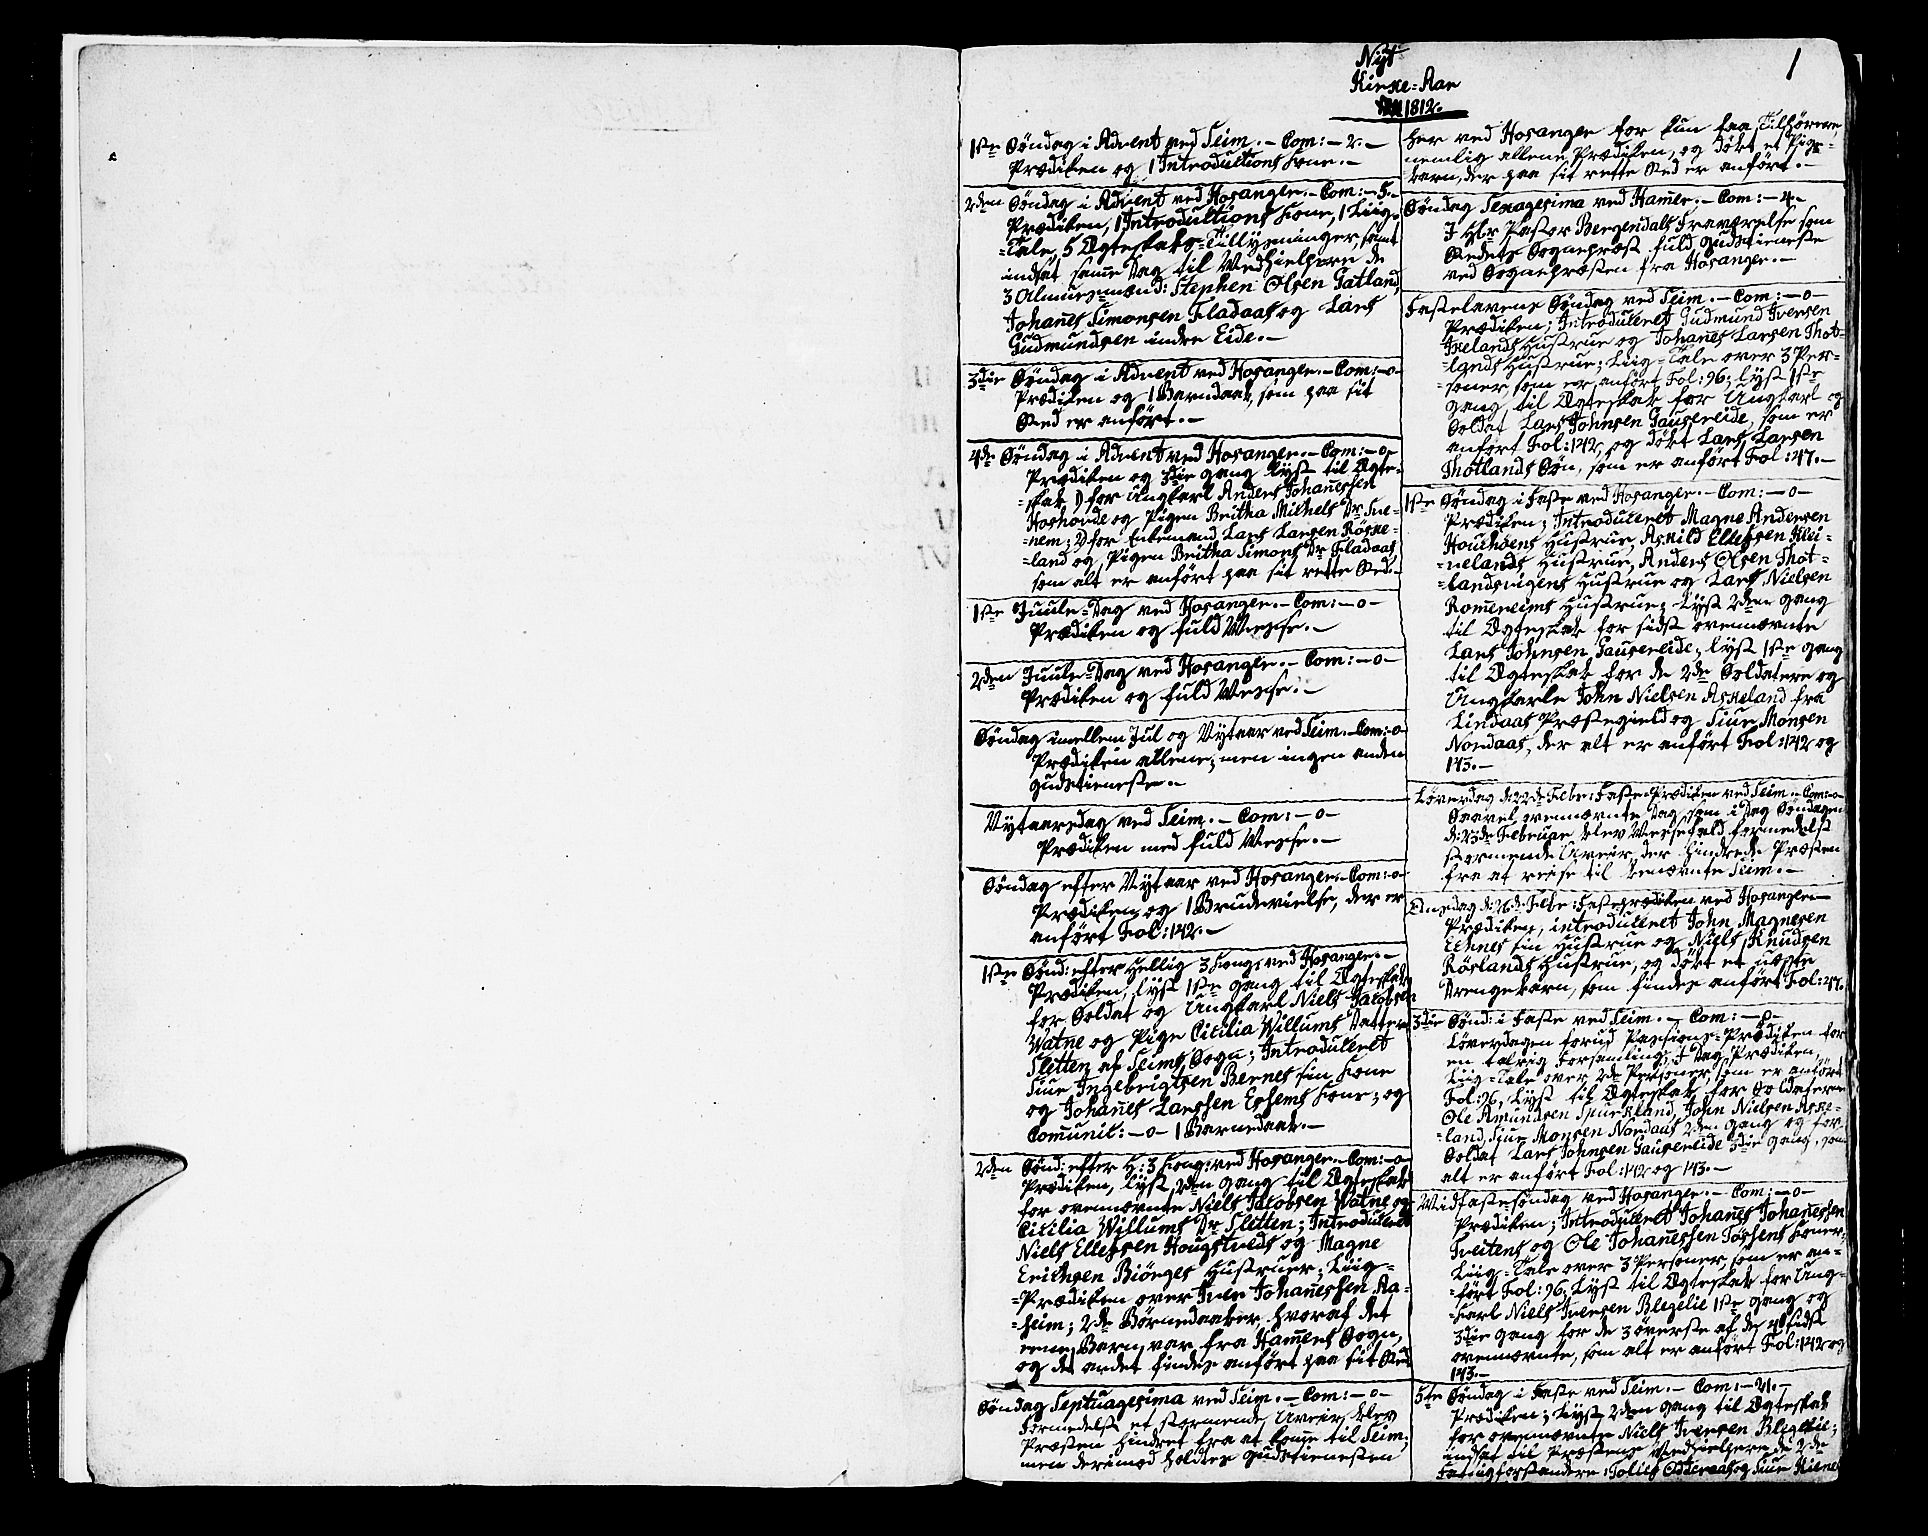 1
Nyt
Kirke-Aar
1812.
1ste Søndag i Advent ved Seim. - Com: - 2. -
Prædiken og 1 Introductions Kone. -
2den Søndag i Advent ved Hosanger. - Com: - 5. -
Prædiken, 1 Introductions Kone, 1 Liig-
=Tale, 5 Ægteskabs-Tillysninger, samt
indsat samme Dag til Medhielpere de
3 Almuesmænd: Stephen Olsen Gatland,
Johanes Simonsen Fladaas og Lars
Gudmundsen indre Eide. -
3die Søndag i Advent ved Hosanger. - Com: - o -
Prædiken og 1 Barndaab, som paa sit
Sted er anført. -
4de Søndag i Advent ved Hosanger. - Com: - o -
Prædiken og 3die gang lyst til Ægte-
=skab 1) for Ungkarl Anders Johanessen
Hoshovde og Pigen Britha Michels Dr
=nem; 2) for Enkemand Lars Larsen Røske-
=land og Pigen Britha Simons Dr Fladaas,
som alt er anført paa sit rette Sted. -
1ste Juule-Dag ved Hosanger. - Com: - o -
Prædiken og fuld Messe. -
2den Juule-Dag ved Hosanger. - Com: - o -
Prædiken og fuld Messe. -
Søndag imellem Jul og Nytaar ved Seim. - Com: - o
Prædiken allene, men ingen anden
gudstieneste. -
Nytaarsdag ved Seim. - Com: - o -
Prædiken med fuld Messe. -
Søndag efter Nytaar ved Hosanger. - Com: - o
Prædiken og 1 Brudevielse, der er
anført Fol: 142. -
1ste Sønd: efter Hellig 3 Kong: ved Hosanger. -
Prædiken, lyst 1ste gang til Ægteskab
for Soldat og Ungkarl Niels Jacobsen
Watne og Pige Cicilia Willums Datter
Sletten af Seims Sogn; Introduceret
Siur Ingebrigtsen Bernes sin Kone
og Johanes Larssen Eshems Kone; og
Comunic: - o - 1 Barnedaab. -
2den Sønd: efter H: 3 Kong: ved Hosanger. - Com: - o -
Prædiken, lyst 2den gang til Ægteskab
for ovennævnte Niels Jacobsen Watne og
Cicilia Willums Dr Sletten; Introduceret
Niels Ellefsen Hougstveds og Magne
Erichsen Biørges Hustruer; Liig-
=Prædiken over Iver Johanessen Aa-
=heim; 2de Børnedaaber, hvoraf det
eene Barn var fra Hamers Sogn,
og det andet findes anført paa sit Sted
Søndag Septuagesima ved Seim. - Com: - o -
Formedelst et stormende Uveir blev
Præsten hindret fra at komme til Seim,
men derimod holdtes gudstienesten
her ved Hosanger for kun faa Tilhørere,
nemlig allene Prædiken, og døbt et Pige-
=barn, der paa sit rette Sted er anført. -
Søndag Sexagesima ved Hamer. - Com: - 4. -
I Hr Pastor Bergendals Fraværelse som
Stedets Sognepræst fuld gudstieneste
ved Sognepræsten fra Hosanger. -
Fastelavens Søndag ved Seim. - Com: - o -
Prædiken; Introduceret Gudmund Iversen
Ixelands Hustrue og Johanes Larsen Thot-
=lands Hustrue; Liig-Tale over 3 Per-
=soner, som er anført Fol: 96; lyst 1ste
gang til Ægteskab for Ungkarl og
Soldat Lars Johnsen Gausereide, som er
anført Fol: 142, og døbt Lars Larsen
Thotlands Søn, som er anført Fol: 47. -
1ste Søndag i Faste ved Hosanger. - Com: - o -
Prædiken; Introduceret Magne Andersen
Hustrue, Askild Ellefsen Klei-
=velands Hustrue, Anders Olsen Thot-
=landsvigens Hustrue og Lars Nielsen
Romereims Hustrue; Lyst 2den gang
til Ægteskab for sidst ovennævnte
Lars Johnsen Gausereide; lyst 1ste gang
til Ægteskab for de 2de Soldatere og
Ungkarle John Nielsen Askeland fra
Lindaas Præstegield og Siur Monsen
Nordaas, der alt er anført Fol: 142 og
143. -
Løverdag d: 22de Febr: Faste-Prædiken ved Seim. - Com: - o -
Saavel ovennævnte Dag, som i Dag Søndagen
d: 23de Februar blev Messefald formedelst
stormende Uveir, der hindrede Præsten
fra at reise til benævnte Seim. -
Onsdag d: 26de Febr: Fasteprædiken ved Hosanger -
Prædiken, introduceret John Magnesen
Echnes sin Hustrue og Niels Knudsen
Røslands Hustrue, og døbt et uægte
Drengebarn, som findes anført Fol: 47.
3die Sønd: i Faste ved Seim. - Com: - o -
Løverdagen forud Passions-Prædiken for
en talrig Forsamling; I Dag Prædiken,
Liig-Tale over 2de Personer, som er anført
Fol: 96, Lyst til Ægteskab for Soldaterne
Ole Amundsen Spurkland, John Nielsen Aske-
=land, Siur Monsen Nordaas 2den gang og for
Soldat Lars Johnsen Gausereide 3die gang, som
alt er anført Fol: 142 og 143. -
Midfastesøndag ved Hosanger. - Com: - o -
Prædiken; Introduceret Johanes Johanessen
Tveitens og Ole Johanessen Tossens Koner;
Liig-Tale over 3 Personer, som er an-
=ført Fol: 96, Lyst til Ægteskab for Ung-
=karl Niels Iversen Blegelie 1ste gang og
3die gang for de 3 øverste af de 4 sidst
ovennævnte, som alt er anført Fol: 142 og
143. -
5te Søndag i Faste ved Seim. - Com: - 21. -
Prædiken; Lyst 2den gang til Ægteskab
for ovennævnte Niels Iversen Blegelie;
indsat til Præstens Medhielpere de 2de
Fattigforstandere: Tollef Odteraas og Siur